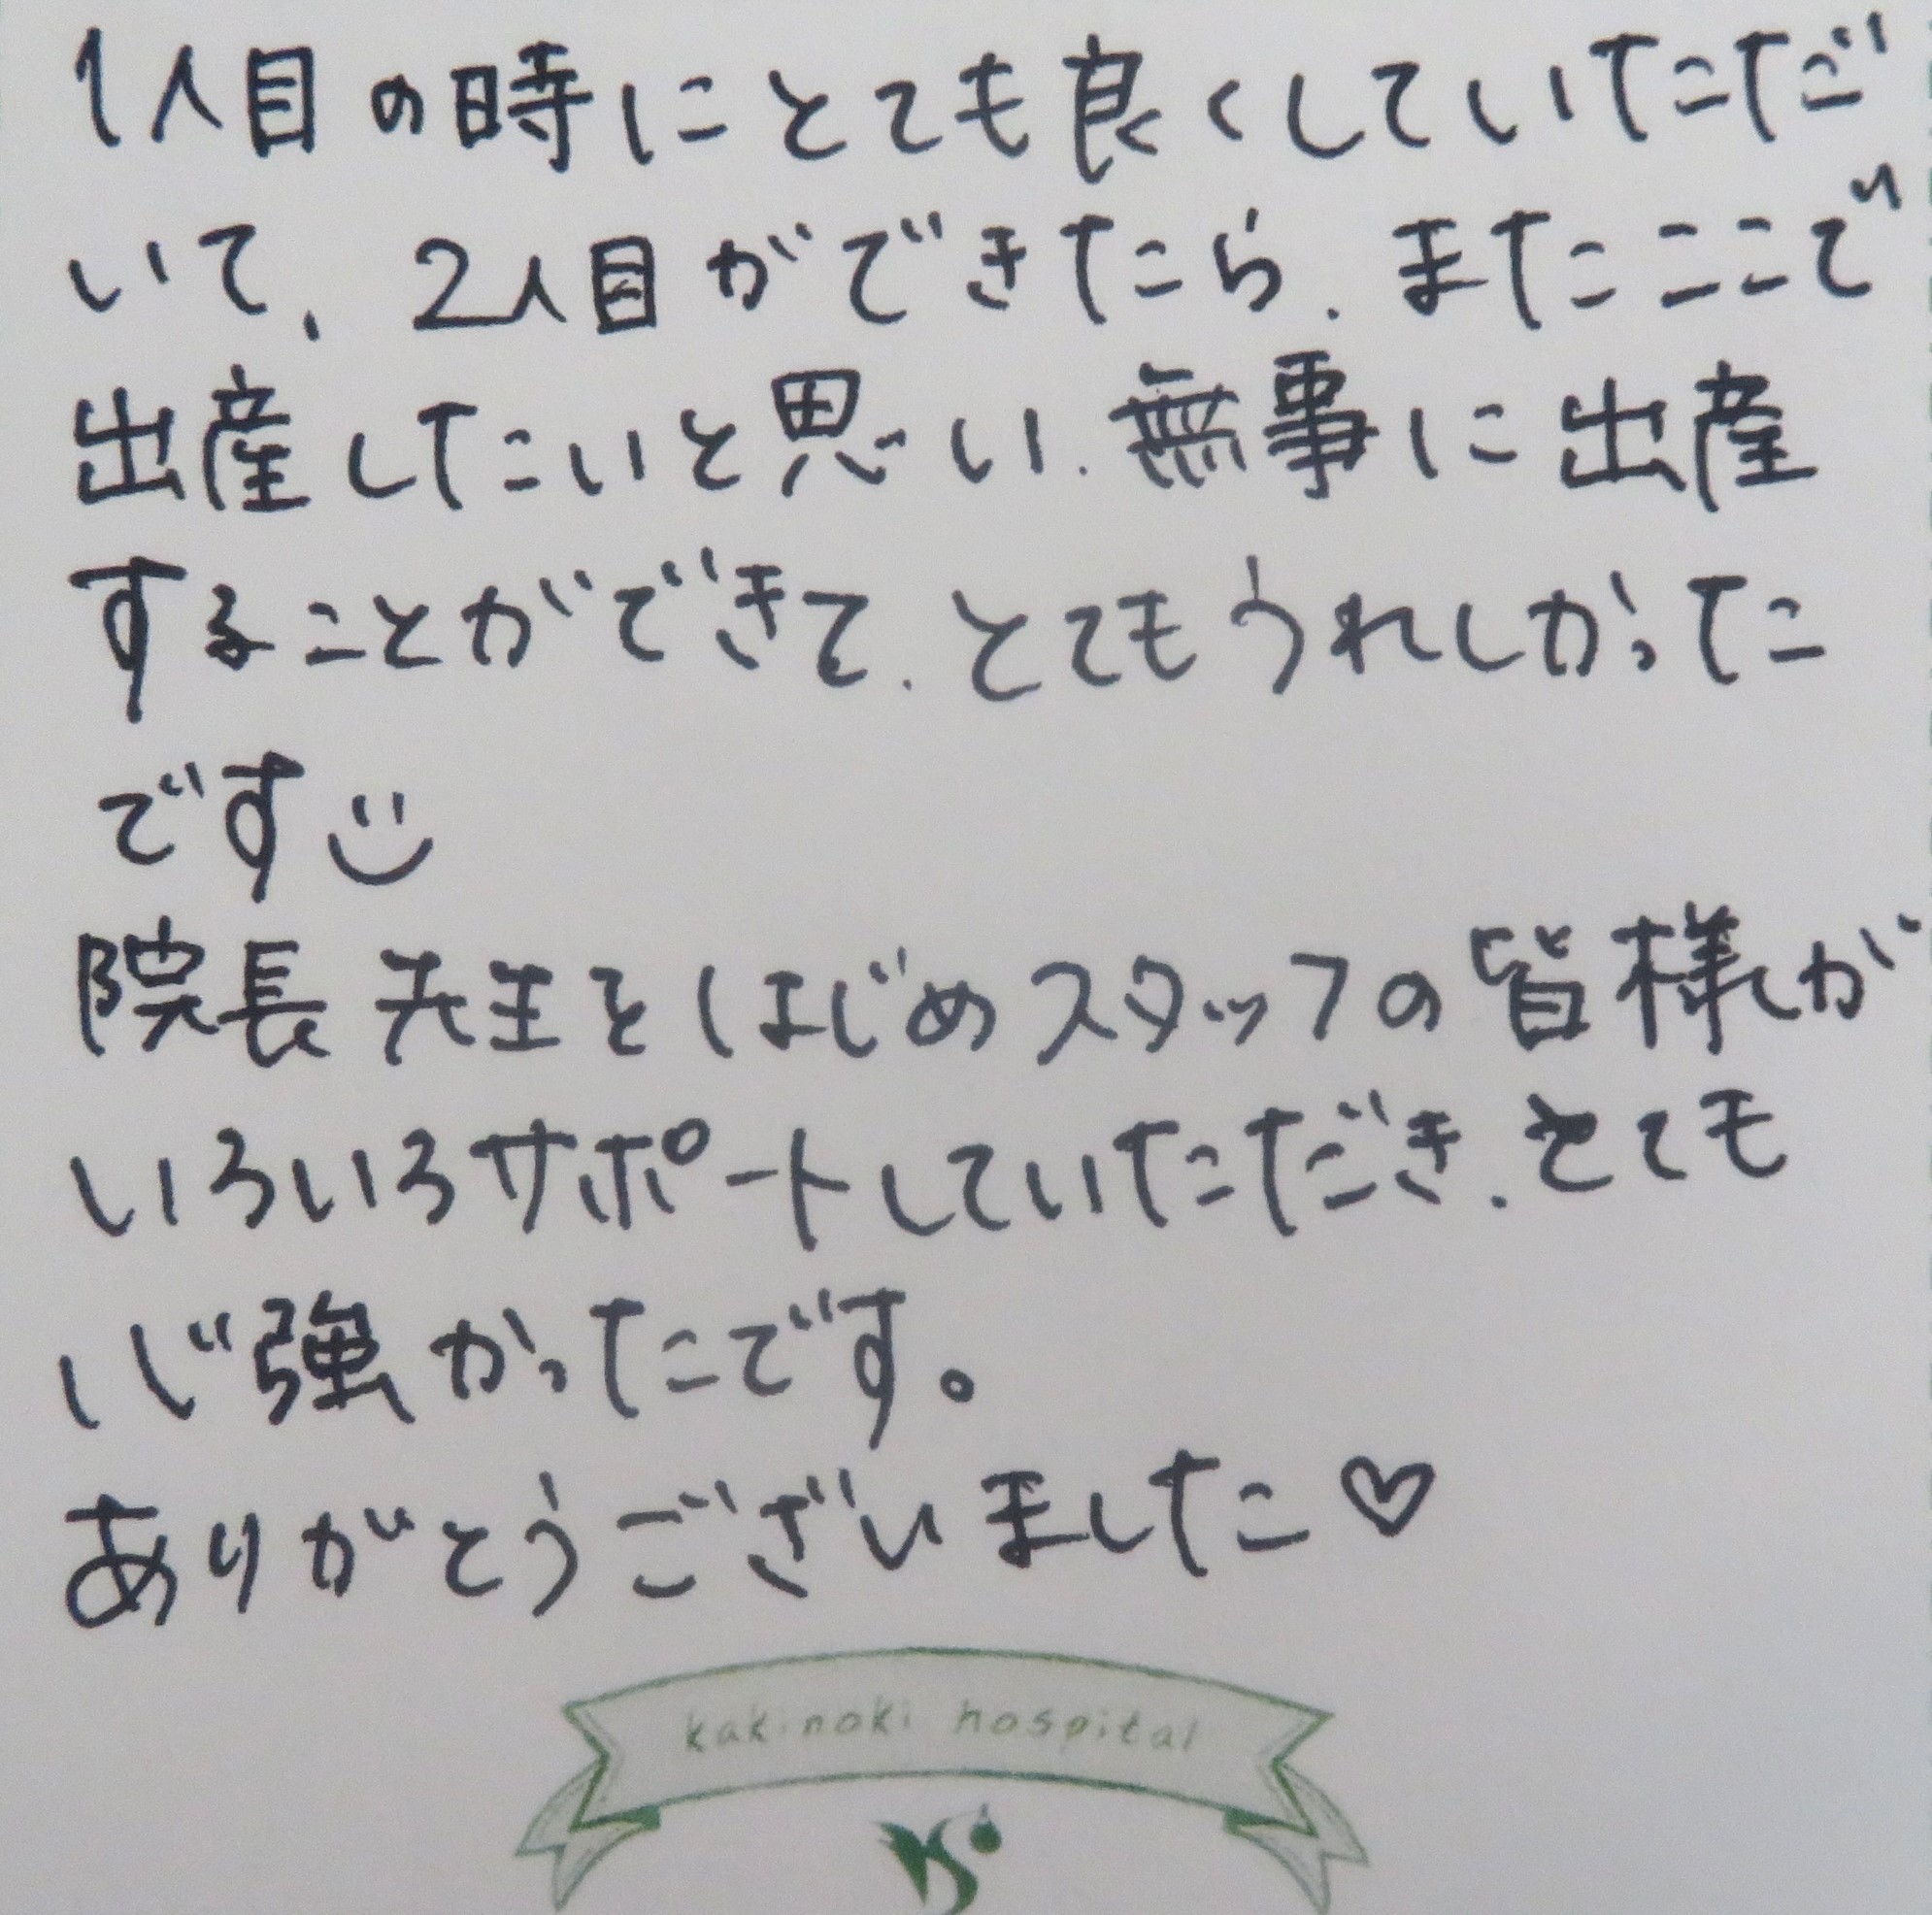 1人目の時にとても良くしていただ
いて、2人目ができたら、またここで
出産したいと思い、無事に出産
することができて、とてもうれしかった
です
院長先生をはじめスタッフの皆様が
いろいろサポートしていただき、とても
心強かったです。
ありがとうございました♡
kakinoki hospital